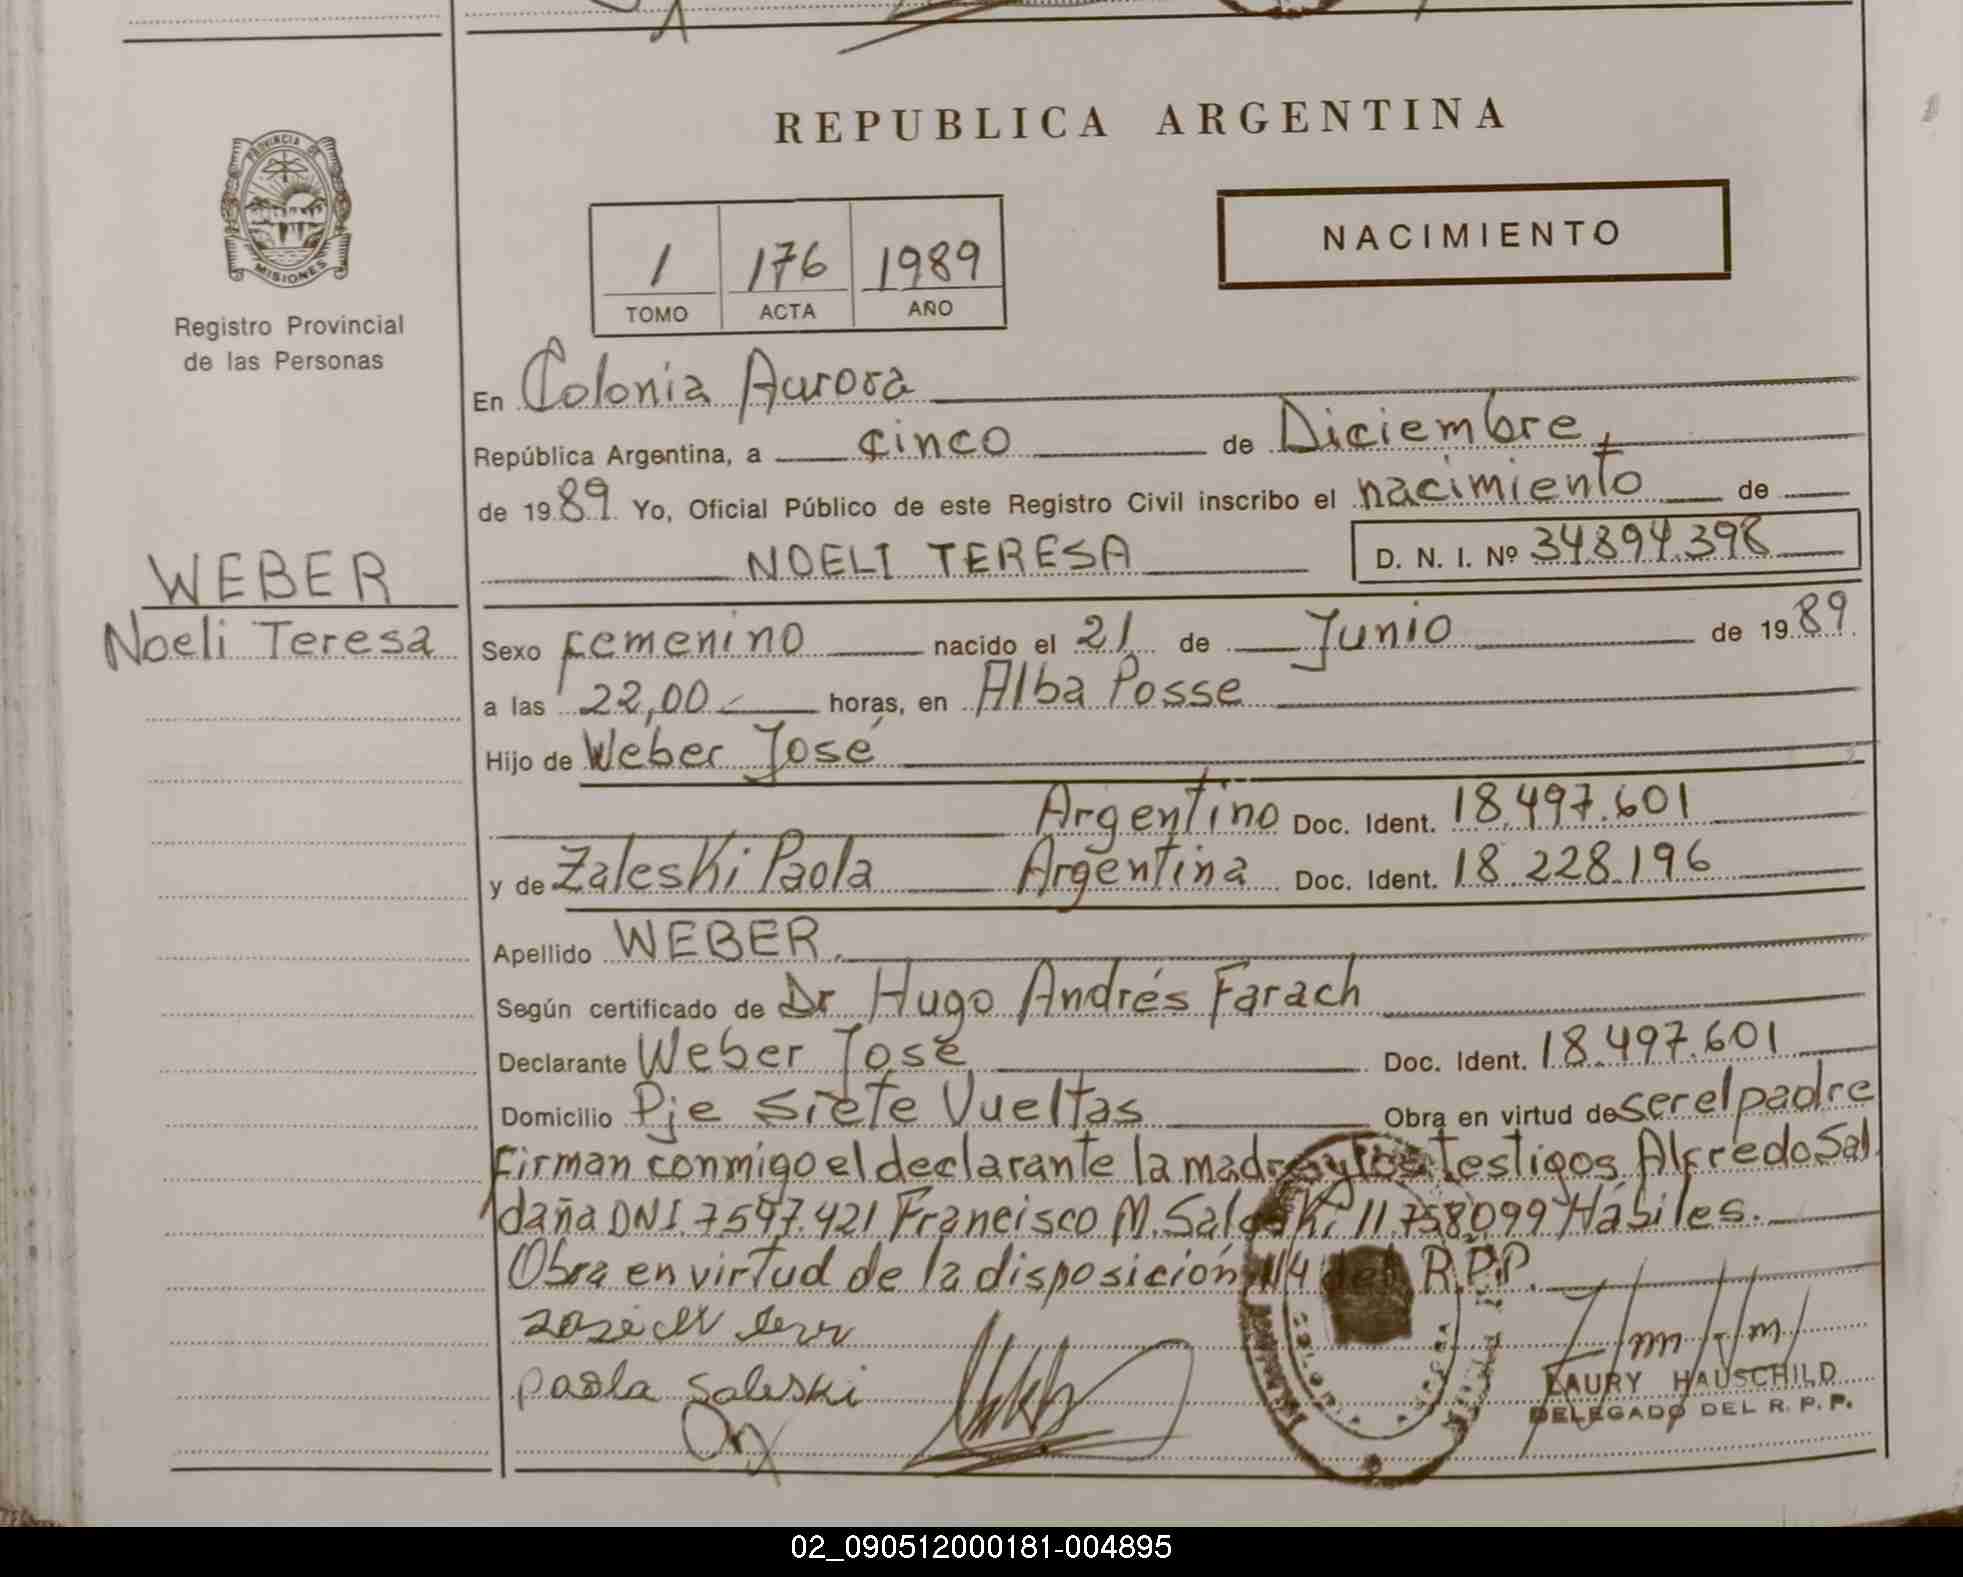 REPUBLICA ARGENTINA
PROVINCIA DE
MISIONES
Registro Provincial
de las Personas
NACIMIENTO
1 176 1989
TOMO ACTA AÑO
En Colonia Aurora
República Argentina, a cinco de Diciembre,
de 1989 Yo, Oficial Público de este Registro Civil inscribo el nacimiento de
NOELI TERESA D. N. I. Nº 34.894.398
WEBER
Noeli Teresa
Sexo femenino nacido el 21 de Junio de 1989.
a las 22,00 horas, en Alba Posse
Hijo de Weber José
Argentino Doc. Ident. 18.497.601
y de Zaleski Paola Argentina Doc. Ident. 18.228.196
Apellido WEBER.
Según certificado de Dr Hugo Andrés Farach
Declarante Weber José Doc. Ident. 18.497.601
Domicilio Pje Siete Vueltas Obra en virtud de ser el padre
firman conmigo el declarante la madre y los testigos Alfredo Sal
daña DNI. 7.597.421 Francisco M. 11.758.099 Hábiles.
Obra en virtud de la disposición 114 del R.P.P.
paola saleski
LAURY HAUSCHILD
DELEGADO DEL R. P. P.
02_090512000181-004895